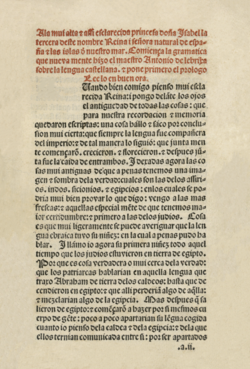 A la mui alta τ assi esclarecida princesa doña Isabel la
tercera deste nombre Reina i señora natural de espa-
ña τ las islas de nuestro mar. Comiença la gramatica
que nueva mente hizo el maestro Antonio de lebrixa
sobre la lengua castellana, τ pone primero el prologo.
Lee lo en buen ora.
Cuando bien comigo pienso mui escla-
recida Reina: i pongo delante los ojos
el antiguedad de todas las cosas: que
para nuestra recordacion τ memoria
quedaron escriptas: una cosa hallo τ saco por conclu-
sion mui cierta: que siempre la lengua fue compañera
del imperio: τ de tal manera lo siguio: que junta mente
començaron. crecieron. τ florecieron. τ despues jun-
ta fue la caida de entrambos. I deradas agora las co-
sas mui antiguas de que a penas tenemos una imagen
τ sombra dela verdad: cuales son las delos assirios.
indos. sicionios. τ egipcios: enlos cuales se podria
mui bien provar lo que digo: vengo a las mas
frescas: τ aquellas especial mente de que tenemos maior
certidumbre: τ primero a las delos judios. Cosa
es que mui ligera mente se puede averiguar que la len-
gua ebraica tuvo su niñez: en la cual a penas pudo hablar.
I llamo io agora su primera niñez todo aquel
tiempo que los judios estuvieron en tierra de egipto.
Por que es cosa verdadera o mui cerca dela verdad:
que los patriarcas hablarian en aquella lengua que
traxo Abraham de tierra delos caldeos: hasta que de-
cendieron en egipto: τ que alli perderian algo de aque-
lla: τ mezclarian algo de la egipcia. Mas despues que sa-
lieron de egipto: τ començaron a hazer por si mesmos cu-
erpo de gente: poco a poco apartarian su lengua cogida
cuanto io pienso dela caldea τ dela egipcia: τ dela que
ellos ternian comunicada entre si: por ser apartados
.a.ii.